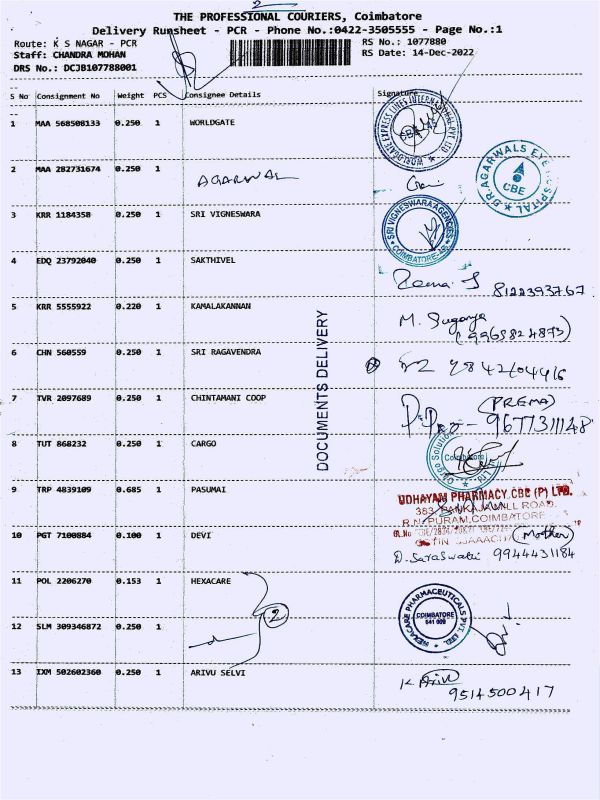 2
THE PROFESSIONAL COURIERS, Coimbatore
Delivery Runsheet - PCR - Phone No.:0422-3505555 - Page No.:1
Route: K S NAGAR - PCR RS No.: 1077880
Staff: CHANDRA MOHAN RS Date: 14-Dec-2022
DRS No.: DCJB107788001
S No Consignment No Weight PCS Consignee Details Signature
1 MAA 568508133 0.250 1 WORLDGATE
WORLDGATE EXPRESS LINES INTERNATIONAL PVT. LTD. CBE
2 MAA 282731674 0.250 1 AGARWAL
DR. AGARWALS EYE HOSPITAL CBE
3 KRR 1184350 0.250 1 SRI VIGNESWARA
SRI VIGNESWARA AGENCIES COIMBATORE
4 EDQ 23792040 0.250 1 SAKTHIVEL
8122393767
5 KRR 5555922 0.220 1 KAMALAKANNAN M. Suganya
(9965824873)
DOCUMENTS DELIVERY
6 CHN 560559 0.250 1 SRI RAGAVENDRA
7 TVR 2097689 0.250 1 CHINTAMANI COOP (PREMA)
9677311148
8 TUT 868232 0.250 1 CARGO
Cargo Solution Coimbatore
9 TRP 4839109 0.685 1 PASUMAI
UDHAYAM PHARMACY CBE (P) LTD.
383, PANKAJA MILL ROAD,
R.N. PURAM, COIMBATORE
10 PGT 7100884 0.100 1 DEVI (Mother)
D. Saraswathi 9944431184
11 POL 2206270 0.153 1 HEXACARE
HEXACARE PHARMACEUTICALS PVT. LTD. COIMBATORE 641 009
2
12 SLM 309346872 0.250 1
13 IXM 502602360 0.250 1 ARIVU SELVI K Arivu
9514500417